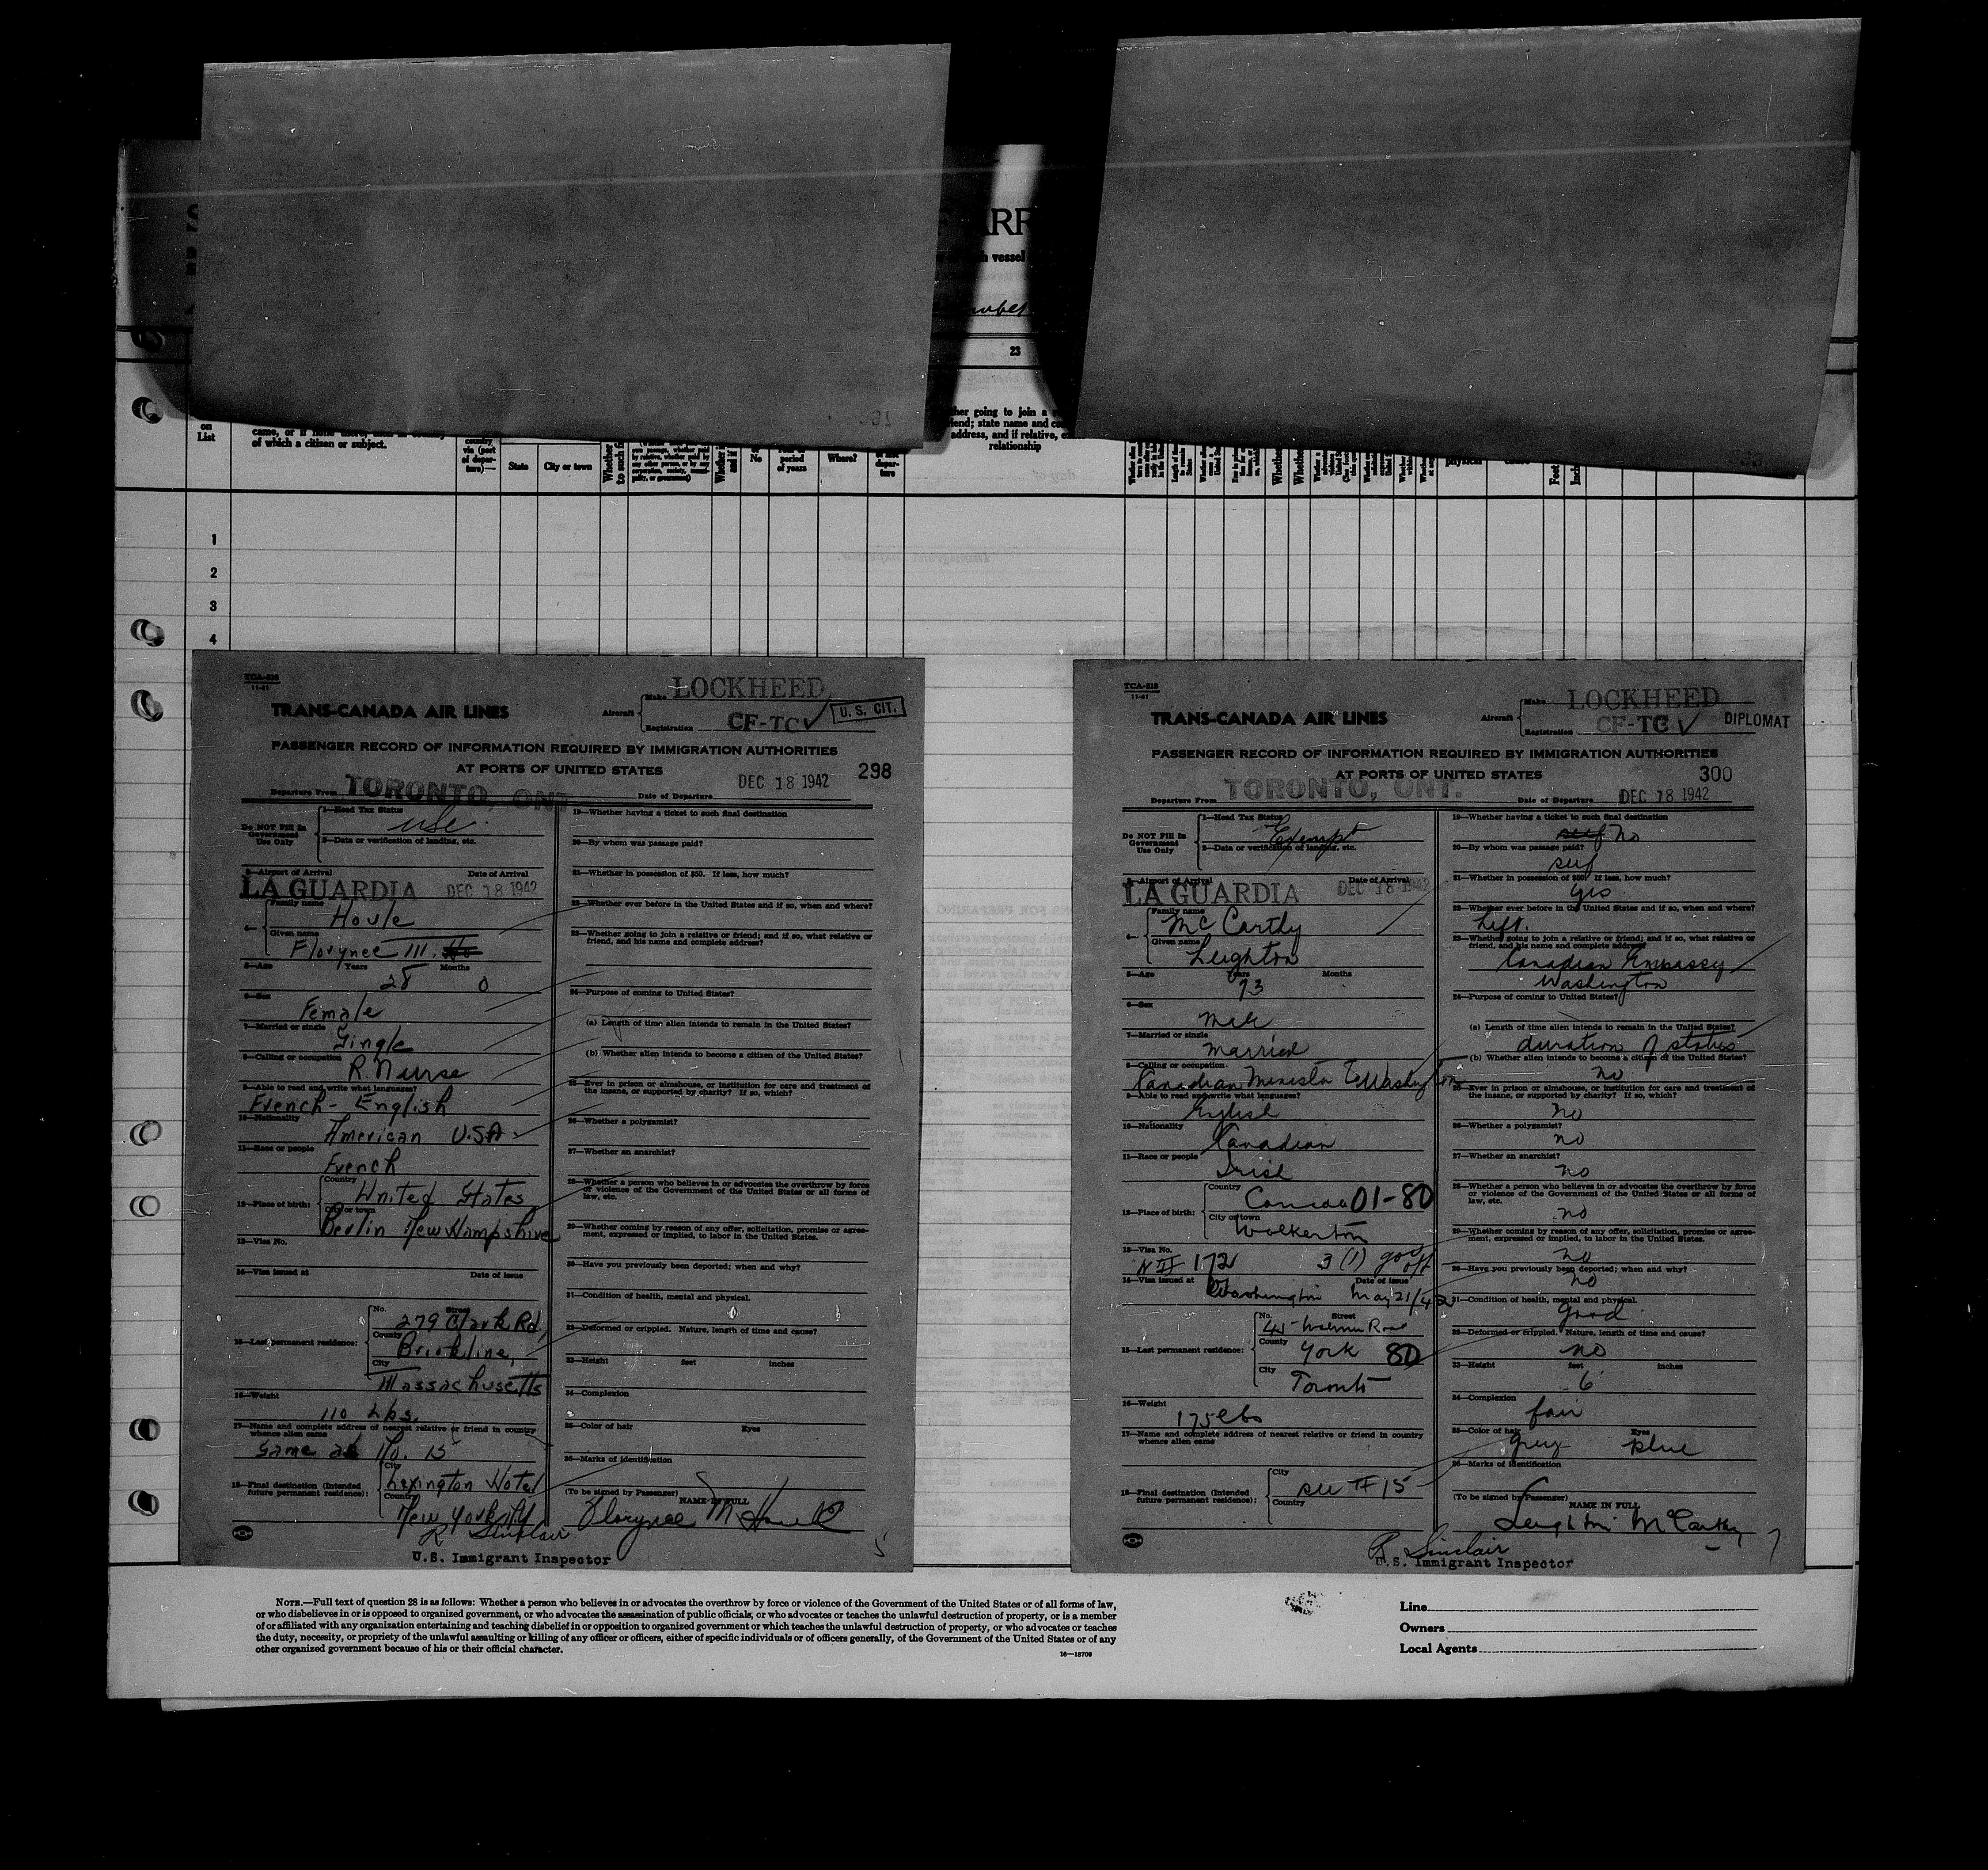 ARR
h vessel
23
her going to join a
end; state name and co
address, and if relative, e
relationship
on
List
came, or if none there, then in country
of which a citizen or subject.
country
via (port
of depar-
ture)—
State
City or town
Whether
to such f
No
period
of years
Where?
depar-
ture
physical
cause
Feet
Inch
1
2
3
4
TCA-818
11-41
TRANS-CANADA AIR LINES
Aircraft
Make LOCKHEED
Registration CF-TC ✓
U. S. CIT.
PASSENGER RECORD OF INFORMATION REQUIRED BY IMMIGRATION AUTHORITIES
AT PORTS OF UNITED STATES
298
Departure From TORONTO, ONT.
Date of Departure DEC 18 1942
Do NOT Fill In
Government
Use Only
1—Head Tax Status
USC
2—Data or verification of landing, etc.
3—Airport of Arrival
Date of Arrival
LA GUARDIA DEC 18 1942
4—
Family name
Houle
Given name
Florynce M.
5—Age
Years
Months
28 0
6—Sex
Female
7—Married or single
Single
8—Calling or occupation
R. Nurse
9—Able to read and write what languages?
French - English
10—Nationality
American U.S.A.
11—Race or people
French
12—Place of birth:
Country
United States
City or town
Berlin New Hampshire
13—Visa No.
14—Visa issued at
Date of issue
15—Last permanent residence:
No.
Street
279 Clark Rd,
County
Brookline,
City
Massachusetts
16—Weight
110 Lbs.
17—Name and complete address of nearest relative or friend in country
whence alien came
Same as No. 15
18—Final destination (Intended
future permanent residence):
City
Lexington Hotel
Country
New York City
19—Whether having a ticket to such final destination
20—By whom was passage paid?
21—Whether in possession of $50. If less, how much?
22—Whether ever before in the United States and if so, when and where?
23—Whether going to join a relative or friend; and if so, what relative or
friend, and his name and complete address?
24—Purpose of coming to United States?
(a) Length of time alien intends to remain in the United States?
(b) Whether alien intends to become a citizen of the United States?
25—Ever in prison or almshouse, or institution for care and treatment of
the insane, or supported by charity? If so, which?
26—Whether a polygamist?
27—Whether an anarchist?
28—Whether a person who believes in or advocates the overthrow by force
or violence of the Government of the United States or all forms of
law, etc.
29—Whether coming by reason of any offer, solicitation, promise or agree-
ment, expressed or implied, to labor in the United States.
30—Have you previously been deported; when and why?
31—Condition of health, mental and physical.
32—Deformed or crippled. Nature, length of time and cause?
33—Height
feet
inches
34—Complexion
35—Color of hair
Eyes
36—Marks of identification
(To be signed by Passenger)
NAME IN FULL
Florynce M. Houle
R Sinclair
U.S. Immigrant Inspector
5
TCA-818
11-41
TRANS-CANADA AIR LINES
Aircraft
Make LOCKHEED
Registration CF-TC ✓
DIPLOMAT
PASSENGER RECORD OF INFORMATION REQUIRED BY IMMIGRATION AUTHORITIES
AT PORTS OF UNITED STATES
300
Departure From TORONTO, ONT.
Date of Departure DEC 18 1942
Do NOT Fill In
Government
Use Only
1—Head Tax Status
Exempt
2—Data or verification of landing, etc.
3—Airport of Arrival
Date of Arrival
LA GUARDIA DEC 18 1942
4—
Family name
McCarthy
Given name
Leighton
5—Age
Years
Months
73
6—Sex
Male
7—Married or single
Married
8—Calling or occupation
Canadian Minister to Washington
9—Able to read and write what languages?
English
10—Nationality
Canadian
11—Race or people
Irish
12—Place of birth:
Country
Canada 01-80
City or town
Walkerton
13—Visa No.
172 3 (1)
14—Visa issued at
Date of issue
Washington May 21/42
15—Last permanent residence:
No.
Street
45 Walmer Road
County
York 80
City
Toronto
16—Weight
175 lbs
17—Name and complete address of nearest relative or friend in country
whence alien came
18—Final destination (Intended
future permanent residence):
City
see #15
Country
19—Whether having a ticket to such final destination
self no
20—By whom was passage paid?
self
21—Whether in possession of $50. If less, how much?
yes
22—Whether ever before in the United States and if so, when and where?
23—Whether going to join a relative or friend; and if so, what relative or
friend, and his name and complete address?
Canadian Embassy
Washington
24—Purpose of coming to United States?
(a) Length of time alien intends to remain in the United States?
duration of status
(b) Whether alien intends to become a citizen of the United States?
no
25—Ever in prison or almshouse, or institution for care and treatment of
the insane, or supported by charity? If so, which?
no
26—Whether a polygamist?
no
27—Whether an anarchist?
no
28—Whether a person who believes in or advocates the overthrow by force
or violence of the Government of the United States or all forms of
law, etc.
no
29—Whether coming by reason of any offer, solicitation, promise or agree-
ment, expressed or implied, to labor in the United States.
no
30—Have you previously been deported; when and why?
no
31—Condition of health, mental and physical.
good
32—Deformed or crippled. Nature, length of time and cause?
no
33—Height
feet
inches
6
34—Complexion
fair
35—Color of hair
Eyes
grey blue
36—Marks of identification
(To be signed by Passenger)
NAME IN FULL
Leighton McCarthy
7
R Sinclair
U.S. Immigrant Inspector
NOTE.—Full text of question 28 is as follows: Whether a person who believes in or advocates the overthrow by force or violence of the Government of the United States or of all forms of law,
or who disbelieves in or is opposed to organized government, or who advocates the assassination of public officials, or who advocates or teaches the unlawful destruction of property, or is a member
of or affiliated with any organization entertaining and teaching disbelief in or opposition to organized government or which teaches the unlawful destruction of property, or who advocates or teaches
the duty, necessity, or propriety of the unlawful assaulting or killing of any officer or officers, either of specific individuals or of officers generally, of the Government of the United States or of any
other organized government because of his or their official character.
16—18709
Line
Owners
Local Agents